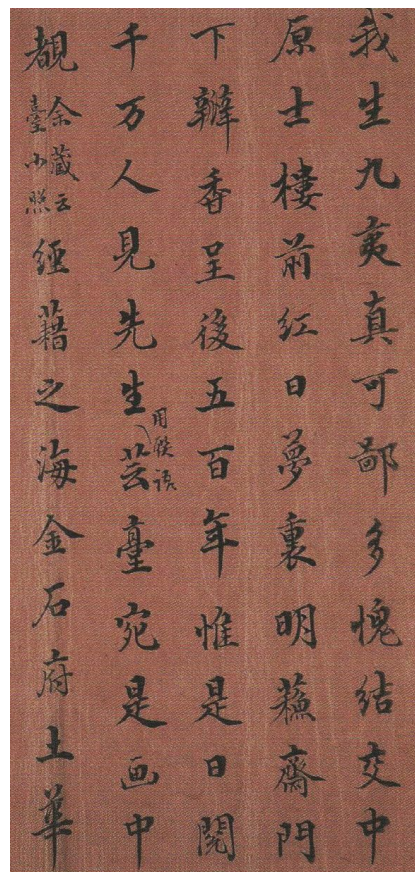 我生九夷真可鄙多愧結交中
原士樓前紅日夢裏明蘓齋門
下瓣香呈後五百年惟是日閱
千万人見先生用聯語芸臺宛是画中
覩余藏云臺小照經籍之海金石府土華